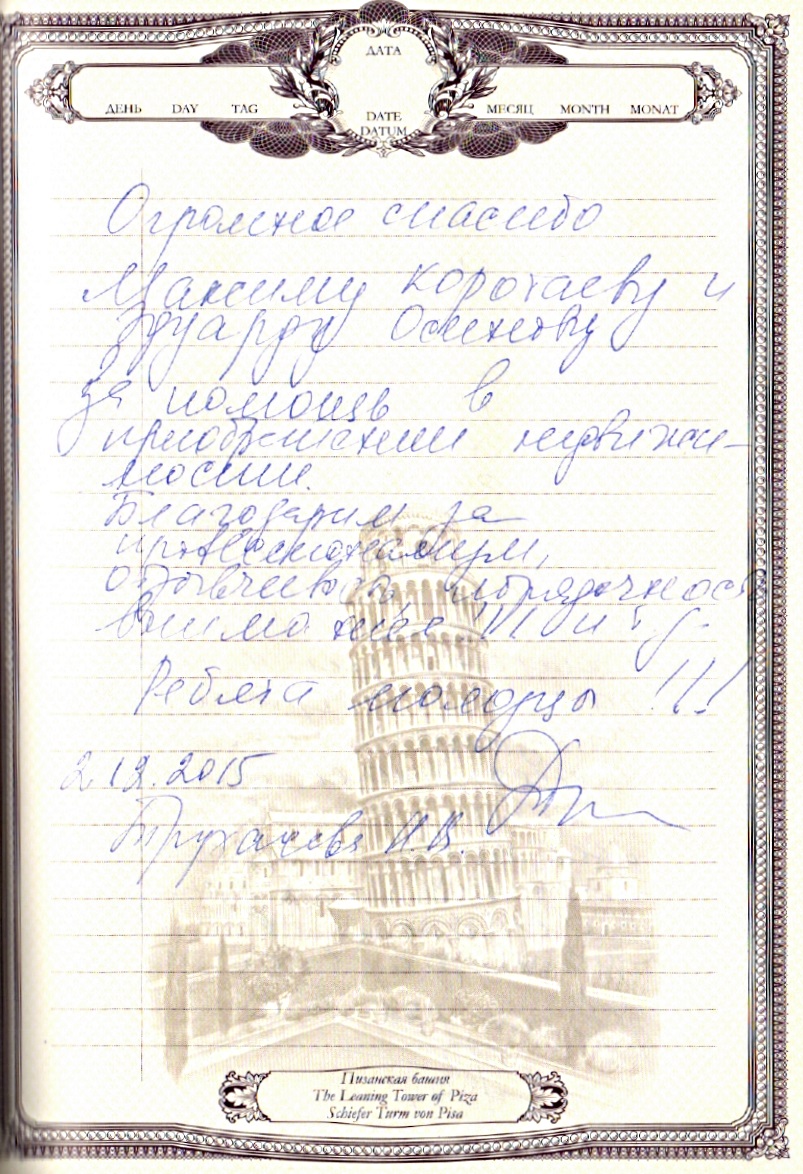 ДАТА
ДЕНЬ DAY TAG
МЕСЯЦ MONTH MONAT
DATE
DATUM
Огромное спасибо
Максиму Коротаеву и
Эдуарду
за помощь в
приобретении недвижи-
мости.
Благодарим за
профессионализм,
отзывчивость, порядочность
внимание !!! и т.д.
Ребята молодцы !!!
2.12.2015
Н.В.
Пизанская башня
The Leaning Tower of Piza
Schiefer Turm von Pisa